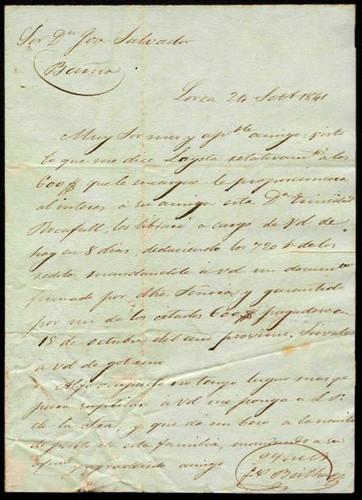 Sor Dn Jose Salvador
Lorca 24 Sett 1841
Muy Sor mio y apble amigo: visto
lo que me dice Layola relativamte a los
600 que le encargué le proporcionara
al interes a su amiga esta Da Trinidad
Rocafull, los libraré a cargo de Vd de
hoy en 8 dias, deduciendo los 720 de los
reditos mandandole á Vd un documto
firmado por dha Señora y garantido
por mi de los citados 600 pagaderos en
15 de octubre del año proximo. Sirvale
á Vd de gobierno
tengo lugar mas que
para suplicar á Vd me ponga a L. P.
de la Sra, y que dé un beso a la
de parte de esta familia, mandando a su
amigo